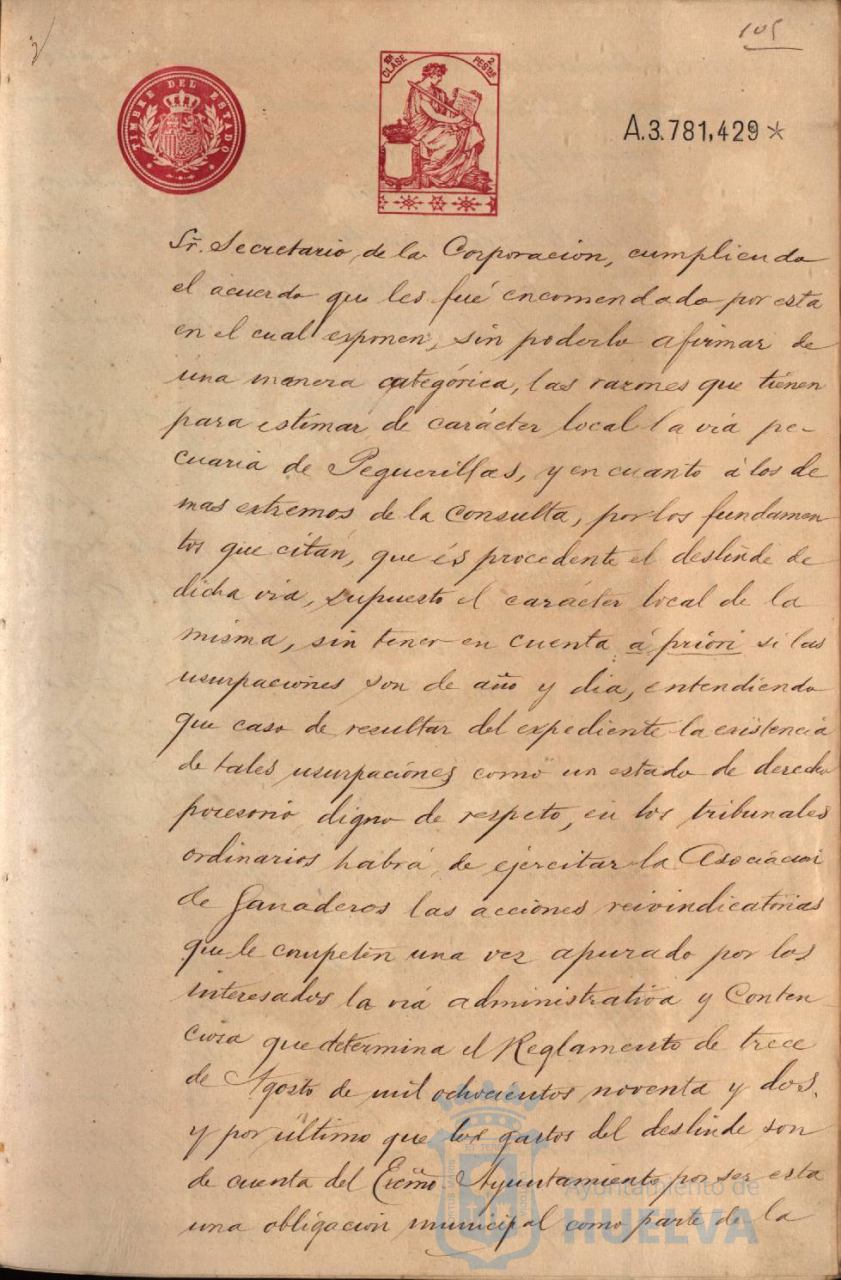 105
TIMBRE DEL ESTADO
CLASE
2
PESTAS
A.3.781,429*
Sr. Secretario de la Corporación, cumpliendo
el acuerdo que les fué encomendado por esta
en el cual exponen, sin poderlo afirmar de
una manera categórica, las razones que tienen
para estimar de carácter local la via pe-
cuaria de Peguerillas, y en cuanto á los de
mas extremos de la consulta, por los fundamen
tos que citan, que és procedente el deslinde de
dicha via, supuesto el carácter local de la
misma, sin tener en cuenta á priori si las
usurpaciones son de año y dia, entendiendo
que caso de resultar del expediente la existencia
de tales usurpaciones como un estado de derecho
posesorio digno de respeto, en los tribunales
ordinarios habrá de ejercitar la Asociacion
de Ganaderos las acciones reivindicatorias
que le competen una vez apurado por los
interesados la via administrativa y Conten-
ciosa que determina el Reglamento de trece
de Agosto de mil ochocientos noventa y dos,
y por último que los gastos del deslinde son
de cuenta del Excmo Ayuntamiento por ser esta
una obligacion municipal como parte de la
Ayuntamiento de
HUELVA